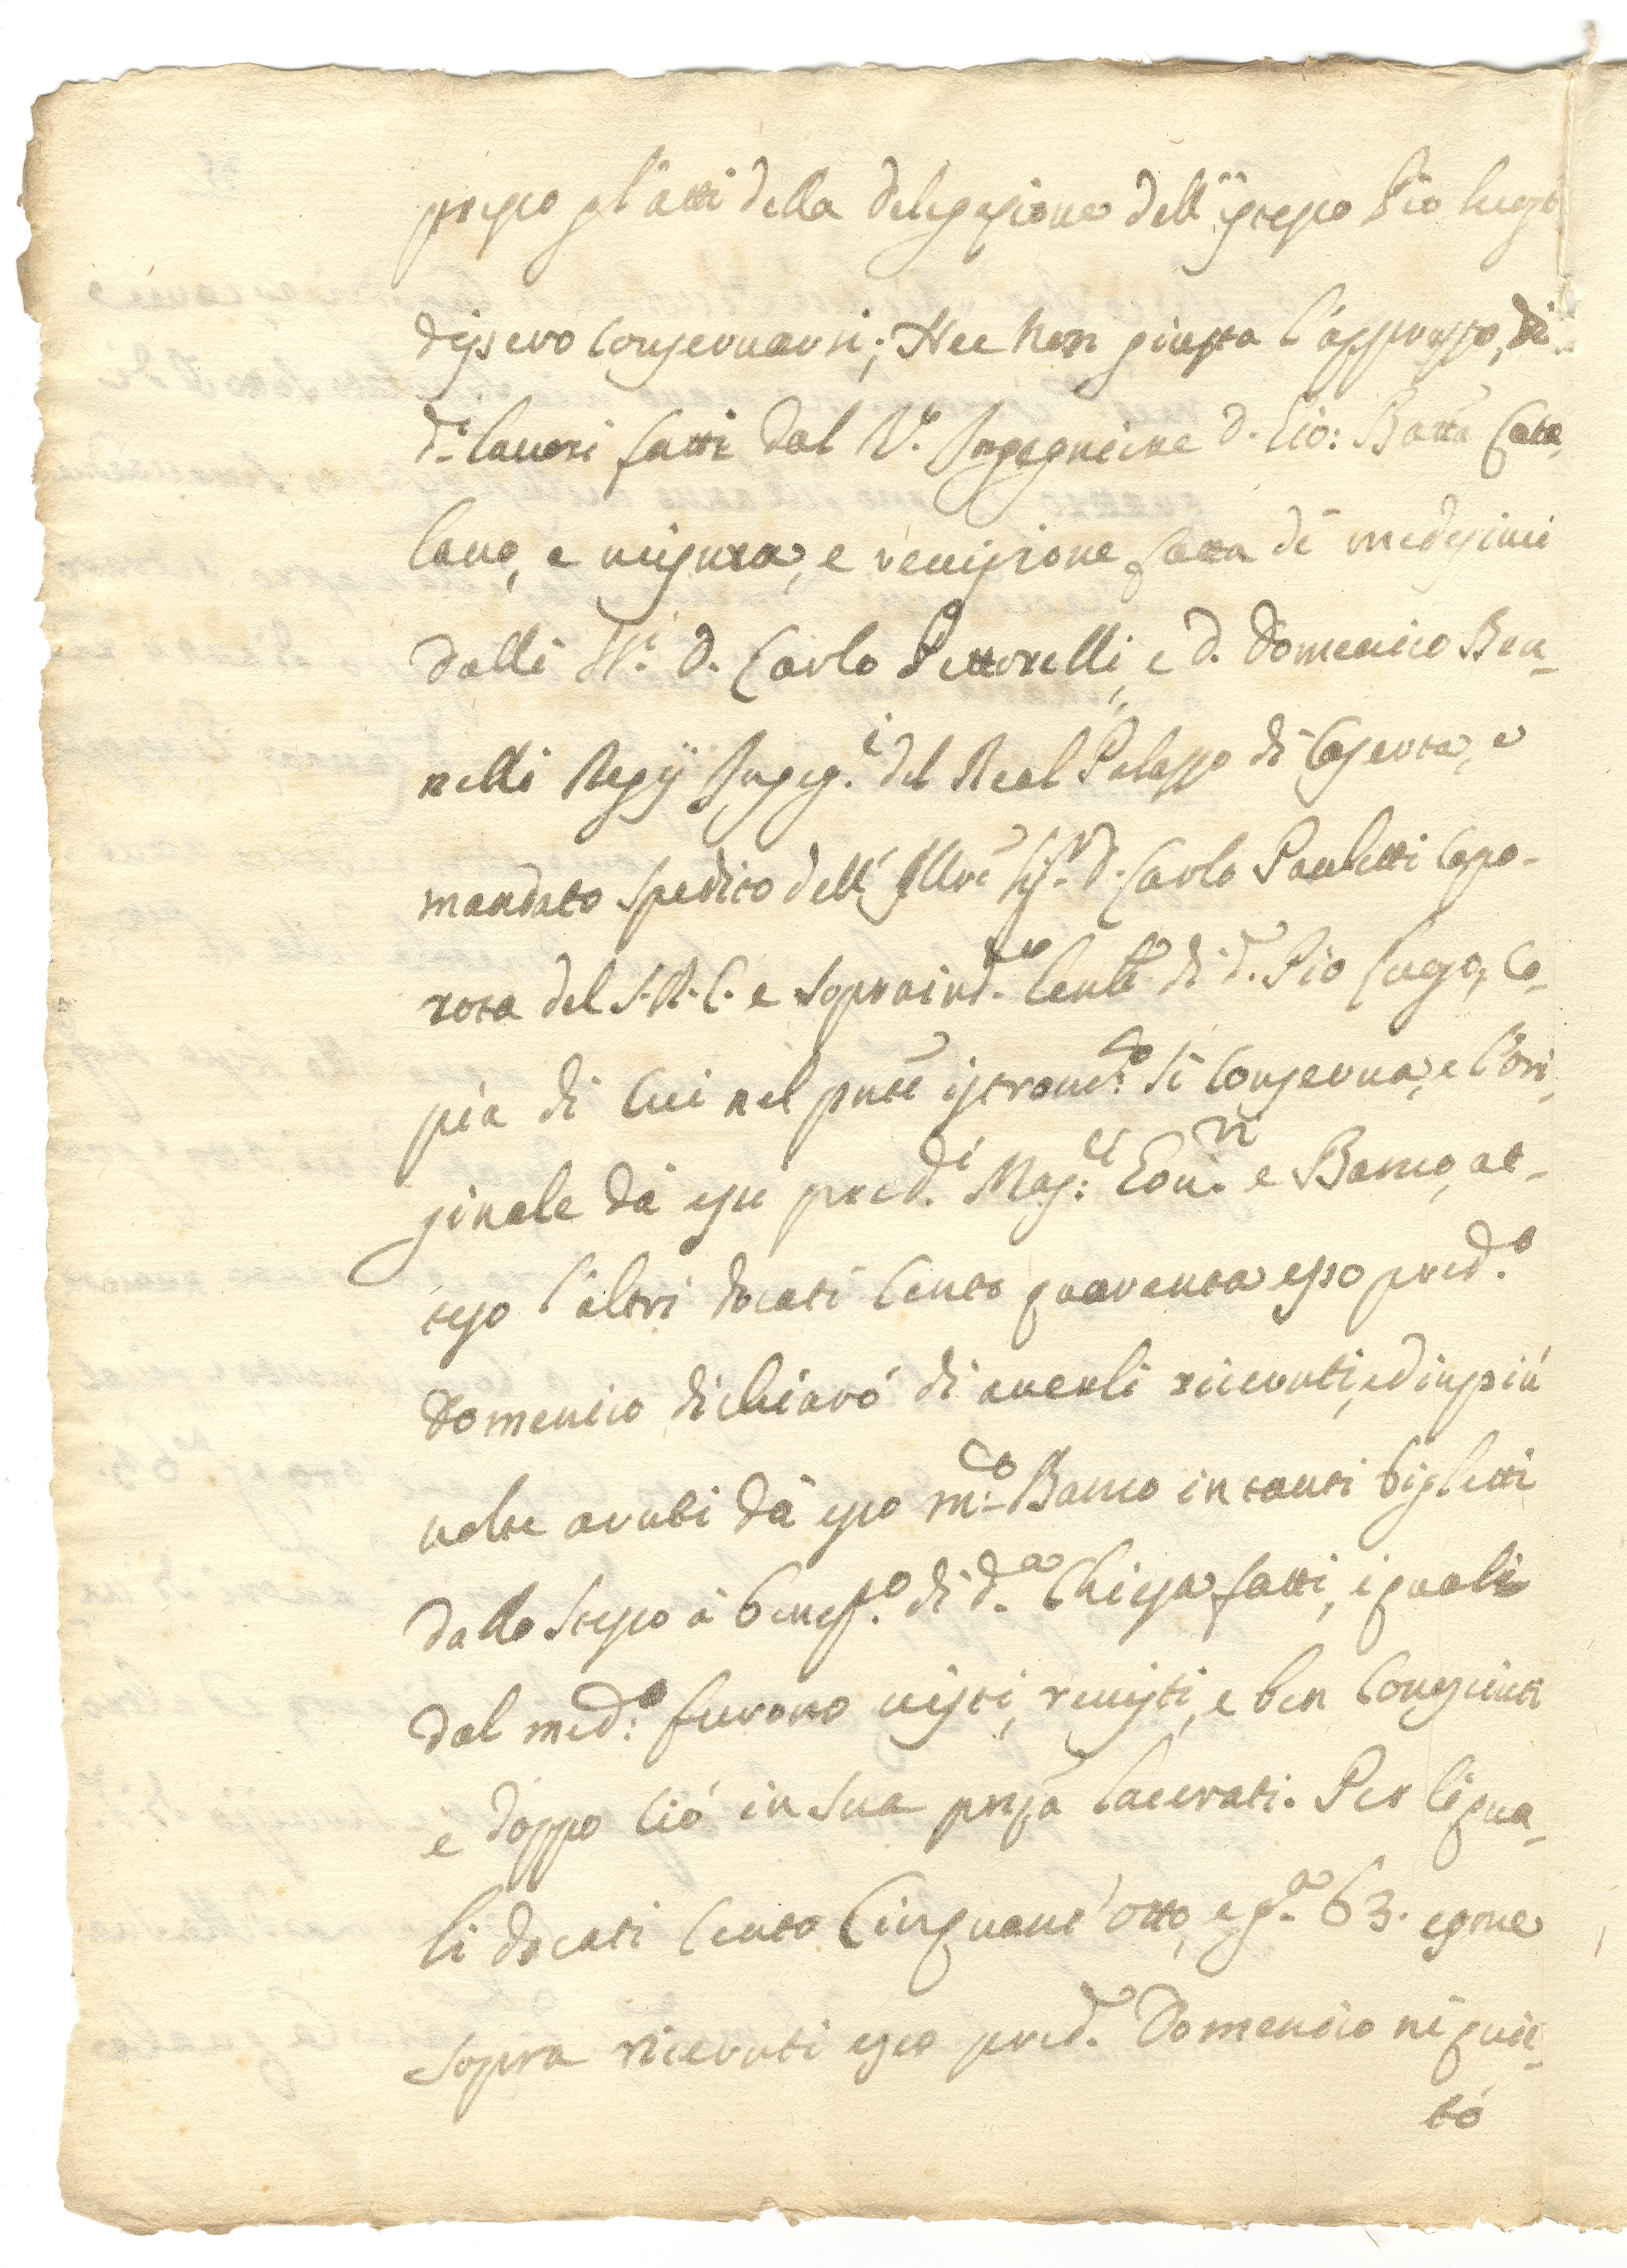 presso gl'atti della delegazione dell'istesso Pio luogo
dissero conservarsi; Nec non giusta l'apprezzo, di
d.i lavori fatti dal R.o Ingegniere D. Gio: Batta Cata,
lano, e misura, e revisione fatta de medesimi
dalli R.i D. Carlo Pettorelli, e D. Domenico Bru-
nelli Regÿ Ingeg.i del Real Palazzo di Caserta, e
mandato spedito dell'Illre Sig.r D. Carlo Pauletti Capo-
rota del S.R.C. e Sopraind.te di d.o Pio luogo, Co-
pia di cui nel pnte istrom.to si conserva, e l'ori,
ginale da essi pred.i Mag.ci Gov.ri e Banco, at-
teso l'altri docati Cento quaranta esso pred.o
Domenico dichiarò di averli ricevuti, ed in più
volte avuti da esso m.co Banco in tanti biglietti
dallo stesso à benef.o di d.a Chiesa fatti, i quali
dal med.o furono visti, revisti, e ben consciuti
e doppo ciò in sua pnza lacerati. Per li qua-
li docati Cento Cinquant'otto, e g.a 63. come
sopra ricevuti esso pred.o Domenico ne quie-
tò